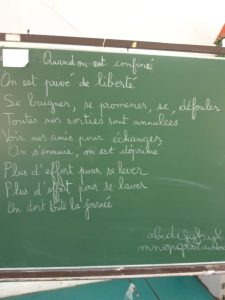 Quand on est confiné
On est privé de liberté
Se baigner, se promener, se défouler
Toutes nos sorties sont annulées
Voir nos amis pour échanger
On s'ennuie, on est déprimé
Plus d'effort pour se lever
Plus d'effort pour se laver
On dort toute la journée